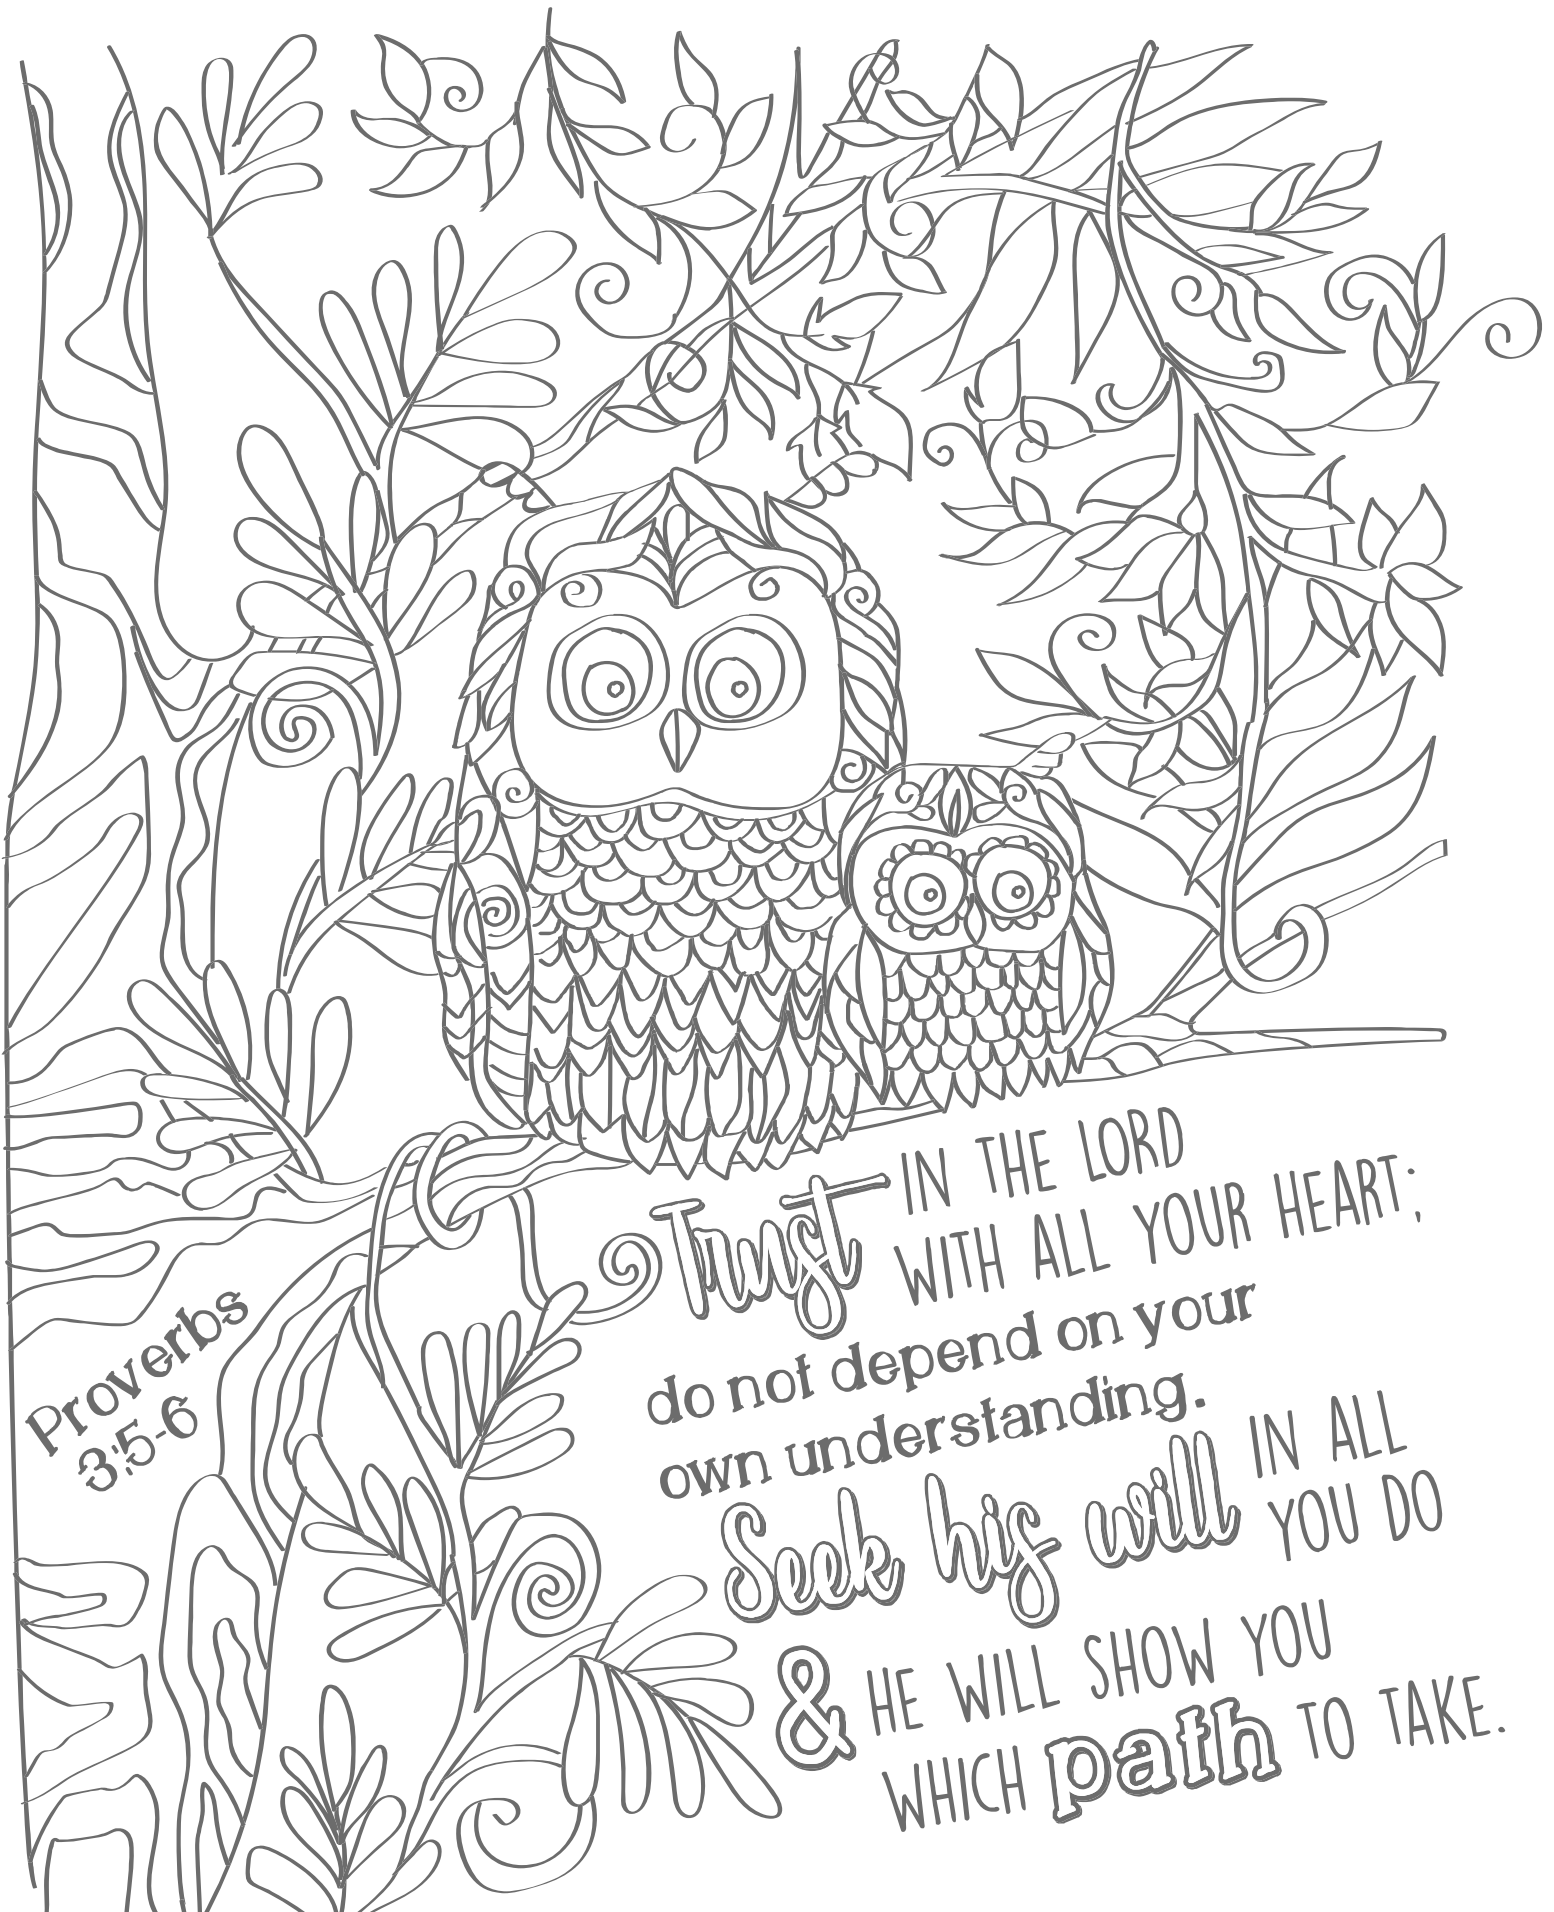 Trust IN THE LORD
WITH ALL YOUR HEART;
do not depend on your
own understanding.
Seek his will IN ALL
YOU DO
& HE WILL SHOW YOU
WHICH path TO TAKE.
Proverbs
3:5-6